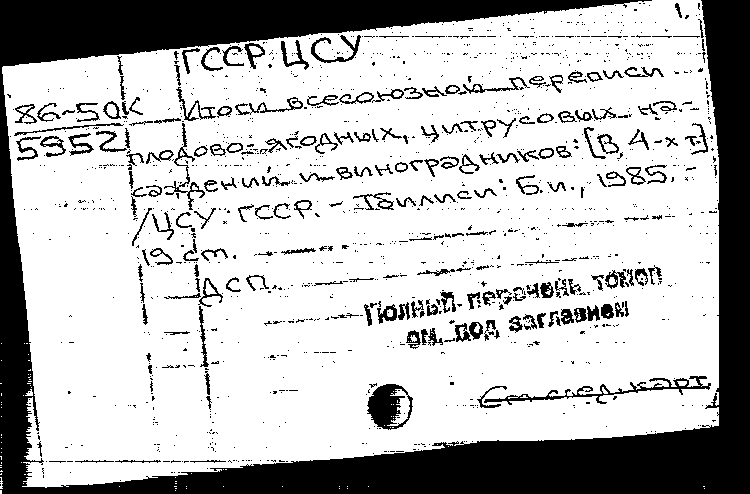 1.
ГССР. ЦСУ
86-50К Итоги всесоюзной переписи
5952 плодово-ягодных, цитрусовых на-
саждений и виноградников: [В 4-х т.]
/ЦСУ ГССР. - Тбилиси: Б.и., 1985. -
19 см.
ДСП.
Полный перечень томов
см. под заглавием
См. след. карт.